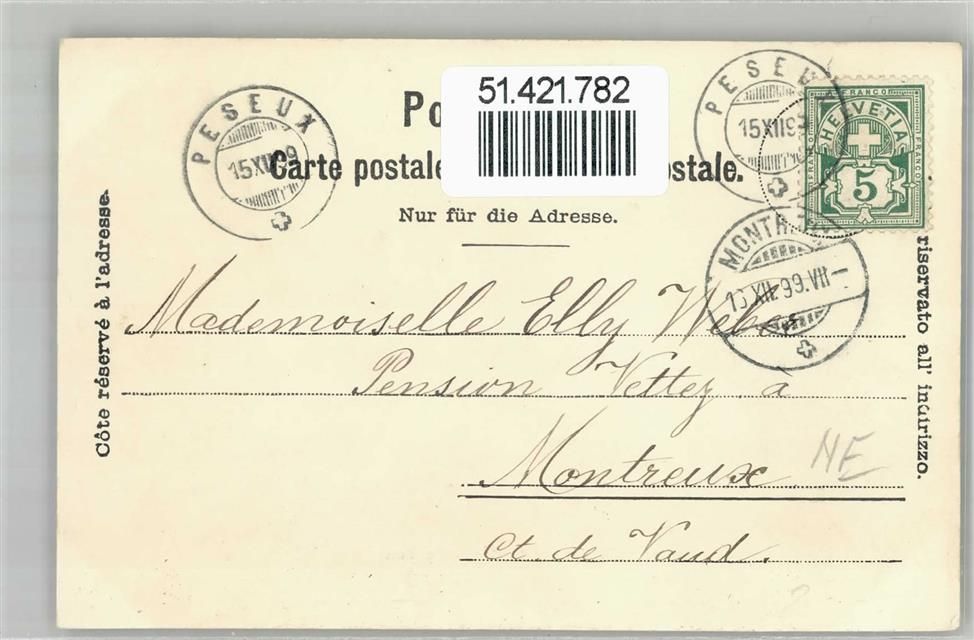 51.421.782
Po
Carte postale. ostale.
Nur für die Adresse.
PESEUX
15 XII 99
PESEUX
15 XII 99
FRANCO
HELVETIA
FRANCO
FRANCO
5
MONTR
XII 99 VII
Côte réservé à l'adresse.
riservato all' indirizzo.
Mademoiselle Elly Weber
Pension Vettez à
Montreux
Ct. de Vaud.
NE